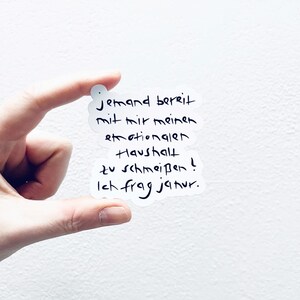 jemand bereit
mit mir meinen
emotionalen
Haushalt
zu schmeißen!
Ich frag ja nur.